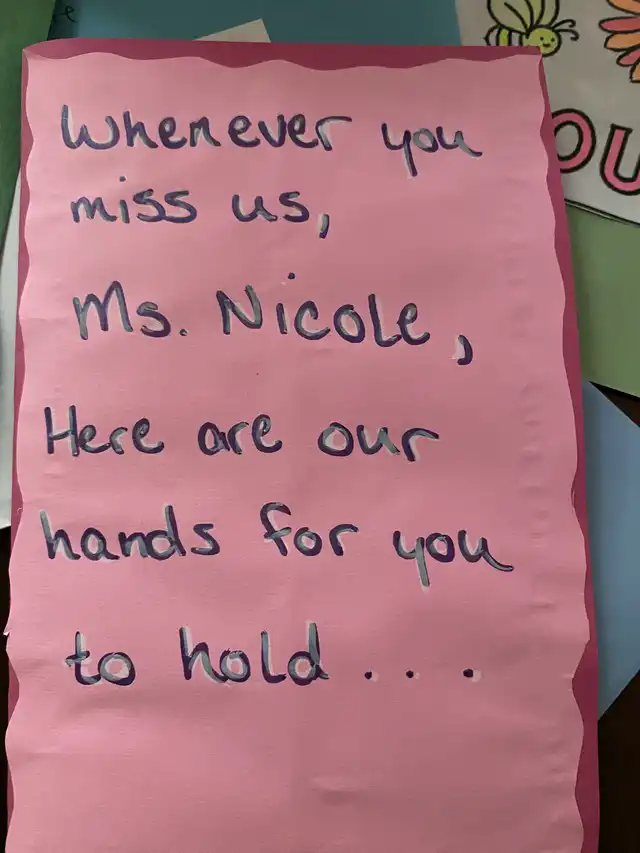 Whenever you
miss us,
Ms. Nicole,
Here are our
hands for you
to hold . . .
OU
e